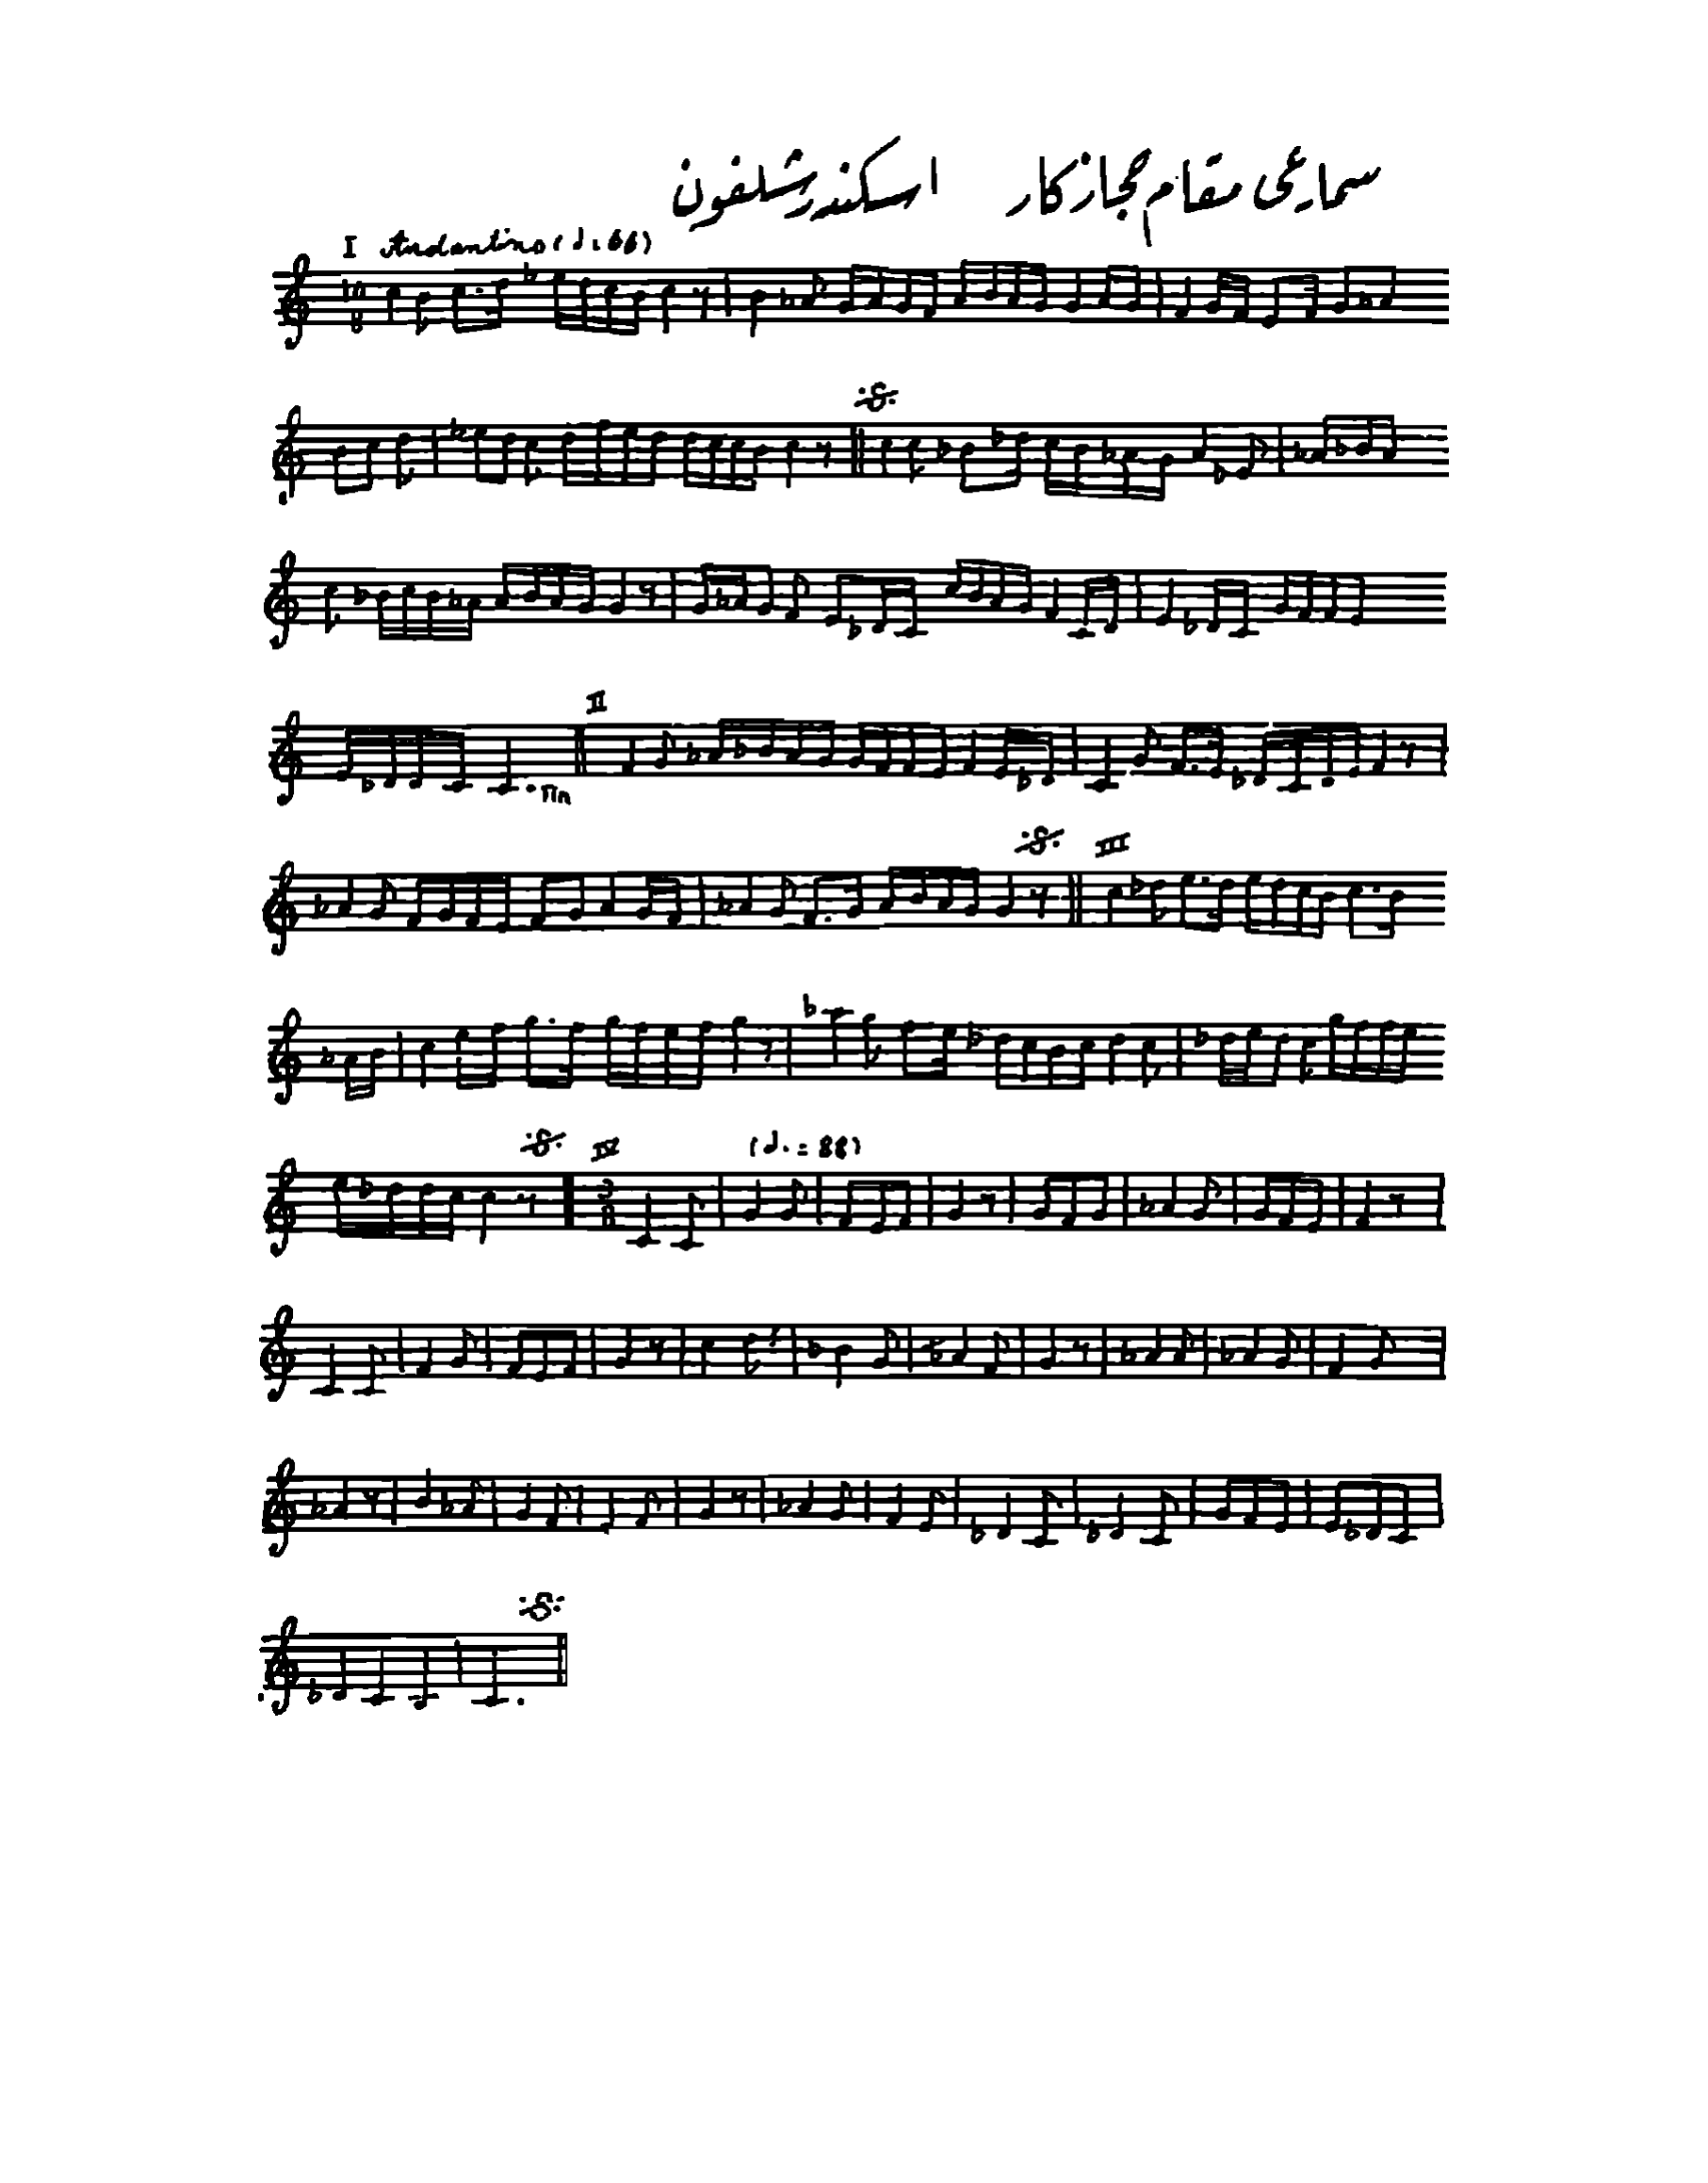 سماعي مقام حجاز كار اسكندر شلفون
I Andantino (♩. 66)
10
8
Fin
II
III
IV (♩. = 88)
3
8